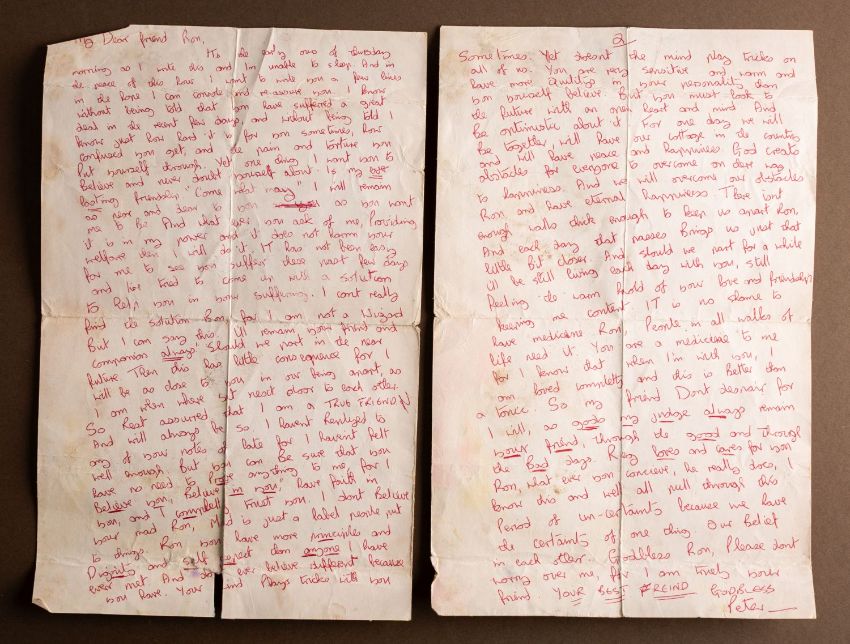 Dear friend Ron,
ITs the early ours of thursday
morning as I write this and Im unable to sleep. And in
the peace of this hour I want to write you a few lines
in the hope I can console and re-assure you. I know
without being told that you have suffered a great
deal in the recent few days, and without being told I
know just how hard it is for you sometimes, how
confused you get, and the pain and torture you
Put yourself through. Yet one thing I want you to
Believe and never doubt yourself about. Is my ever
lasting friendship "Come what may" I will remain
as near and dear to you as you want
me to be. And what ever you ask of me, Providing
it is in my power and it does not harm your
welfare then I will do it. IT has not been easy
for me to see you suffer these past few days
and Ive tried to come up with a solution
to help you in your suffering. I cant really
find the solution Ron, for I am not a Wizard
But I can say this. Ill remain your friend and
companion always" Should we part in the near
future Then this has little consequence for I
will be as close to you in our being apart, as
I am when where sat next door to each other.
So Rest assured that I am a TRUE FRIEND.
And will always be so I havent Replied to
any of your notes of late for I havent felt
well enough. But you can be sure that you
have no need to Prove anything to me, for I
Believe you, Believe in you, have faith in
you, and I completly Trust you. I dont Believe
your mad Ron, Mad is just a label people put
to things. Ron you have more principles and
Dignity and self respect than anyone I have
ever met. And dont ever believe different because
you have. Your mind Plays tricks with you
2
Sometimes. Yet doesnt the mind play tricks on
all of us. You are very sensitive and warm and
have more Quality in your personality than
you yourself believe. But you must look to
the future with an open heart and mind. And
Be optimistic about it. For one day we will
Be together, will have our cottage in the country
and will have peace and Happiness. God creats
obstacles for everyone to overcome on there way
to happiness. And we will overcome our obstacles
Ron and have eternal Happiness. There isnt
enough walls thick enough to keep us apart Ron,
And each day that passes Brings us just that
little bit closer. And should we part for a while
Ill be still living each day with you, still
feeling the warm hold of your love and friendship
keeping me content. IT is no shame to
have medicine Ron, People in all walks of
life need it. You are a medicine to me
for I know that when I'm with you, I
am loved completly and this is better than
a tonic. So my friend Dont despair for
I will, as gods my judge always remain
your friend, through the good and through
the Bad days. Reg loves and cares for you
Ron, what ever you concieve, he really does, I
know this and well all pull through this
Period of un-certainty because we have
the certainty of one thing Our Belief
in each other. Godbless Ron, Please dont
worry over me, for I am truly your
friend. YOUR BEST FREIND GODBLESS
Peter